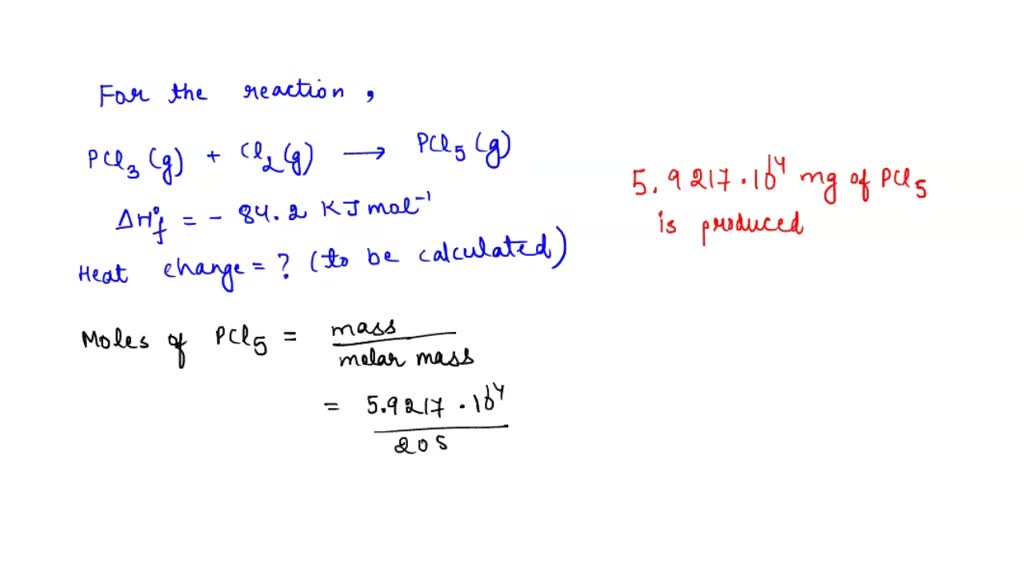 For the reaction,
PCl₃ (g) + Cl₂ (g) → PCl₅ (g)
ΔH°f = - 84.2 KJ mol⁻¹
Heat change = ? (to be calculated)
5.9217 · 10⁴ mg of PCl₅
is produced
Moles of PCl₅ = mass
molar mass
= 5.9217 · 10⁴
205